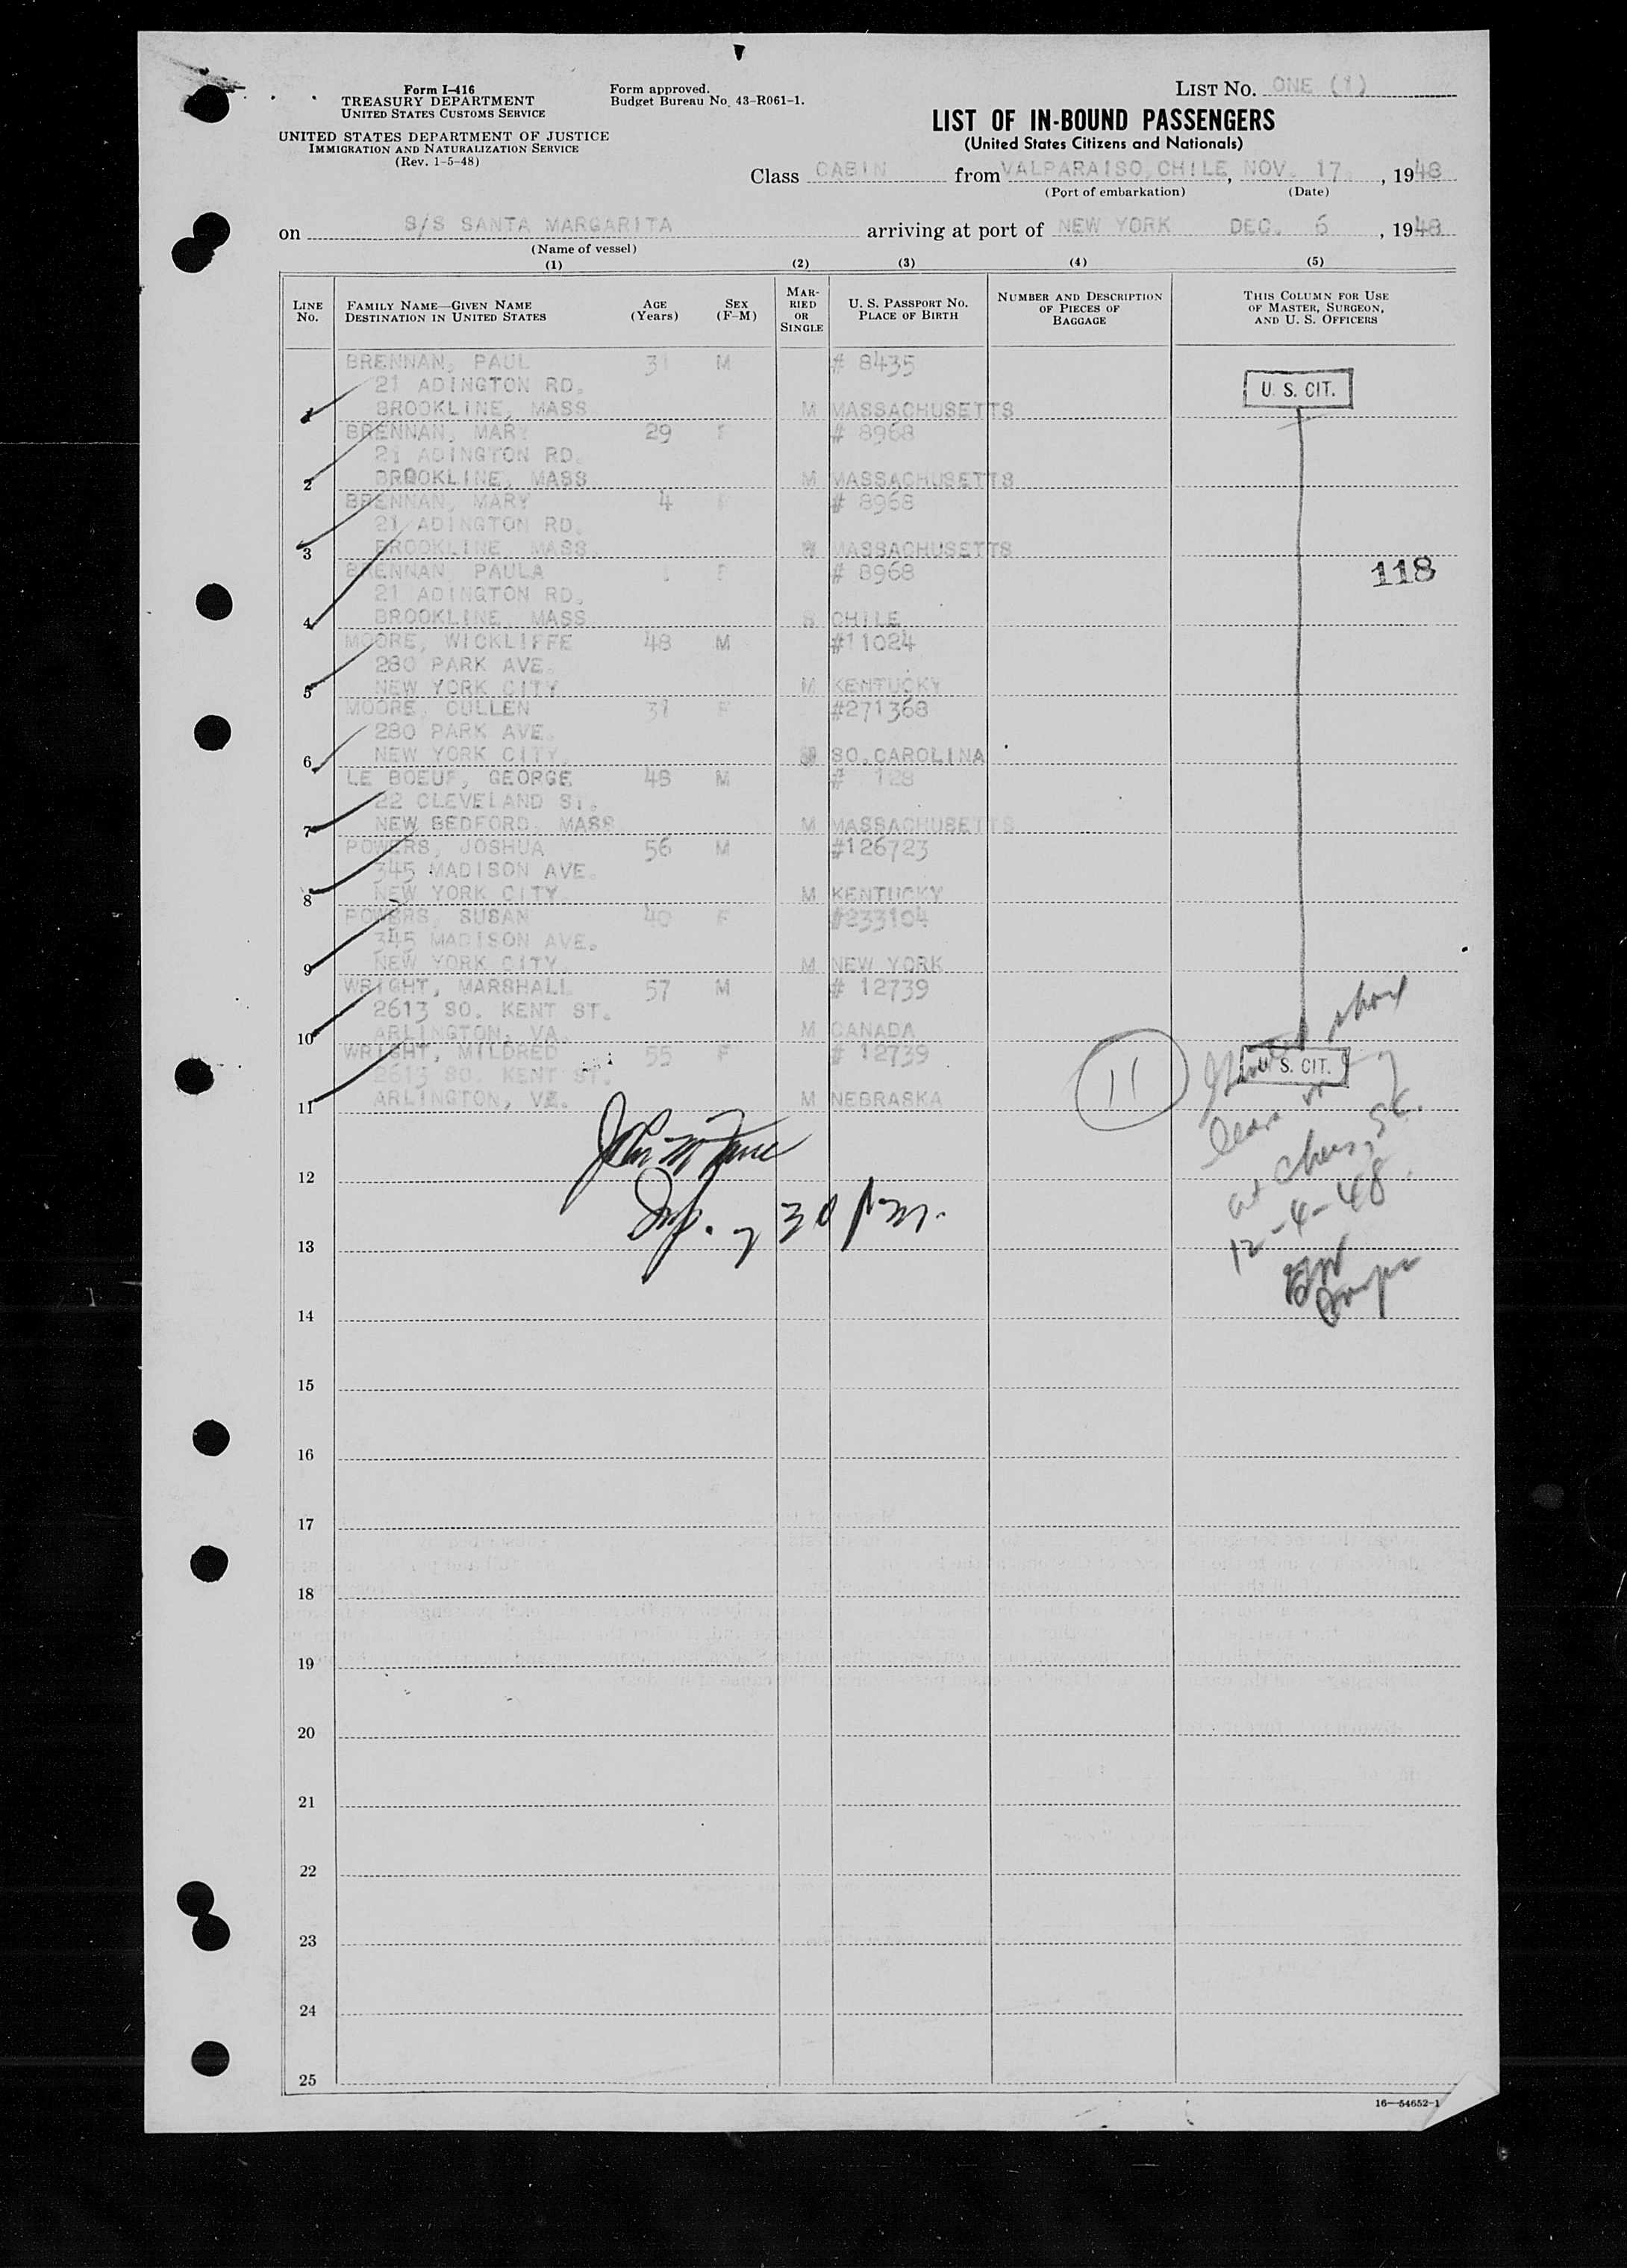 Form I-416
TREASURY DEPARTMENT
UNITED STATES CUSTOMS SERVICE
UNITED STATES DEPARTMENT OF JUSTICE
IMMIGRATION AND NATURALIZATION SERVICE
(Rev. 1-5-48)
Form approved.
Budget Bureau No. 43-R061-1.
LIST NO. ONE (1)
LIST OF IN-BOUND PASSENGERS
(United States Citizens and Nationals)
Class CABIN from VALPARAISO, CHILE, NOV. 17, 1948
(Port of embarkation) (Date)
on S/S SANTA MARGARITA arriving at port of NEW YORK DEC. 6, 1948
(Name of vessel)
(1) (2) (3) (4) (5)
LINE NO. FAMILY NAME—GIVEN NAME DESTINATION IN UNITED STATES AGE (Years) SEX (F-M) MARRIED OR SINGLE U. S. PASSPORT NO. PLACE OF BIRTH NUMBER AND DESCRIPTION OF PIECES OF BAGGAGE THIS COLUMN FOR USE OF MASTER, SURGEON, AND U. S. OFFICERS
BRENNAN, PAUL 31 M # 8435
21 ADINGTON RD. U. S. CIT.
1 BROOKLINE, MASS M MASSACHUSETTS
BRENNAN, MARY 29 F # 8968
21 ADINGTON RD.
2 BROOKLINE, MASS M MASSACHUSETTS
BRENNAN, MARY 4 F # 8968
21 ADINGTON RD.
3 BROOKLINE, MASS MASSACHUSETTS
BRENNAN PAULA 1 F # 8968 118
21 ADINGTON RD.
4 BROOKLINE, MASS S CHILE
MOORE, WICKLIFFE 48 M #11024
280 PARK AVE.
5 NEW YORK CITY M KENTUCKY
MOORE, CULLEN 31 F #271368
280 PARK AVE.
6 NEW YORK CITY. SO.CAROLINA
LE BOEUF, GEORGE 48 M # 128
22 CLEVELAND ST.
7 NEW BEDFORD, MASS M MASSACHUSETTS
POWERS, JOSHUA 56 M #126723
345 MADISON AVE.
8 NEW YORK CITY M KENTUCKY
POWERS, SUSAN 40 F #233104
345 MADISON AVE.
9 NEW YORK CITY M NEW YORK
WRIGHT, MARSHALL 57 M # 12739
2613 SO. KENT ST.
10 ARLINGTON, VA. M CANADA
WRIGHT, MILDRED 55 F # 12739
2613 SO. KENT ST. 11 U. S. CIT.
11 ARLINGTON, VA. M NEBRASKA
12
Insp. 30
at Chas, S.C.
12-4-48
13
14
15
16
17
18
19
20
21
22
23
24
25
16—54652-1